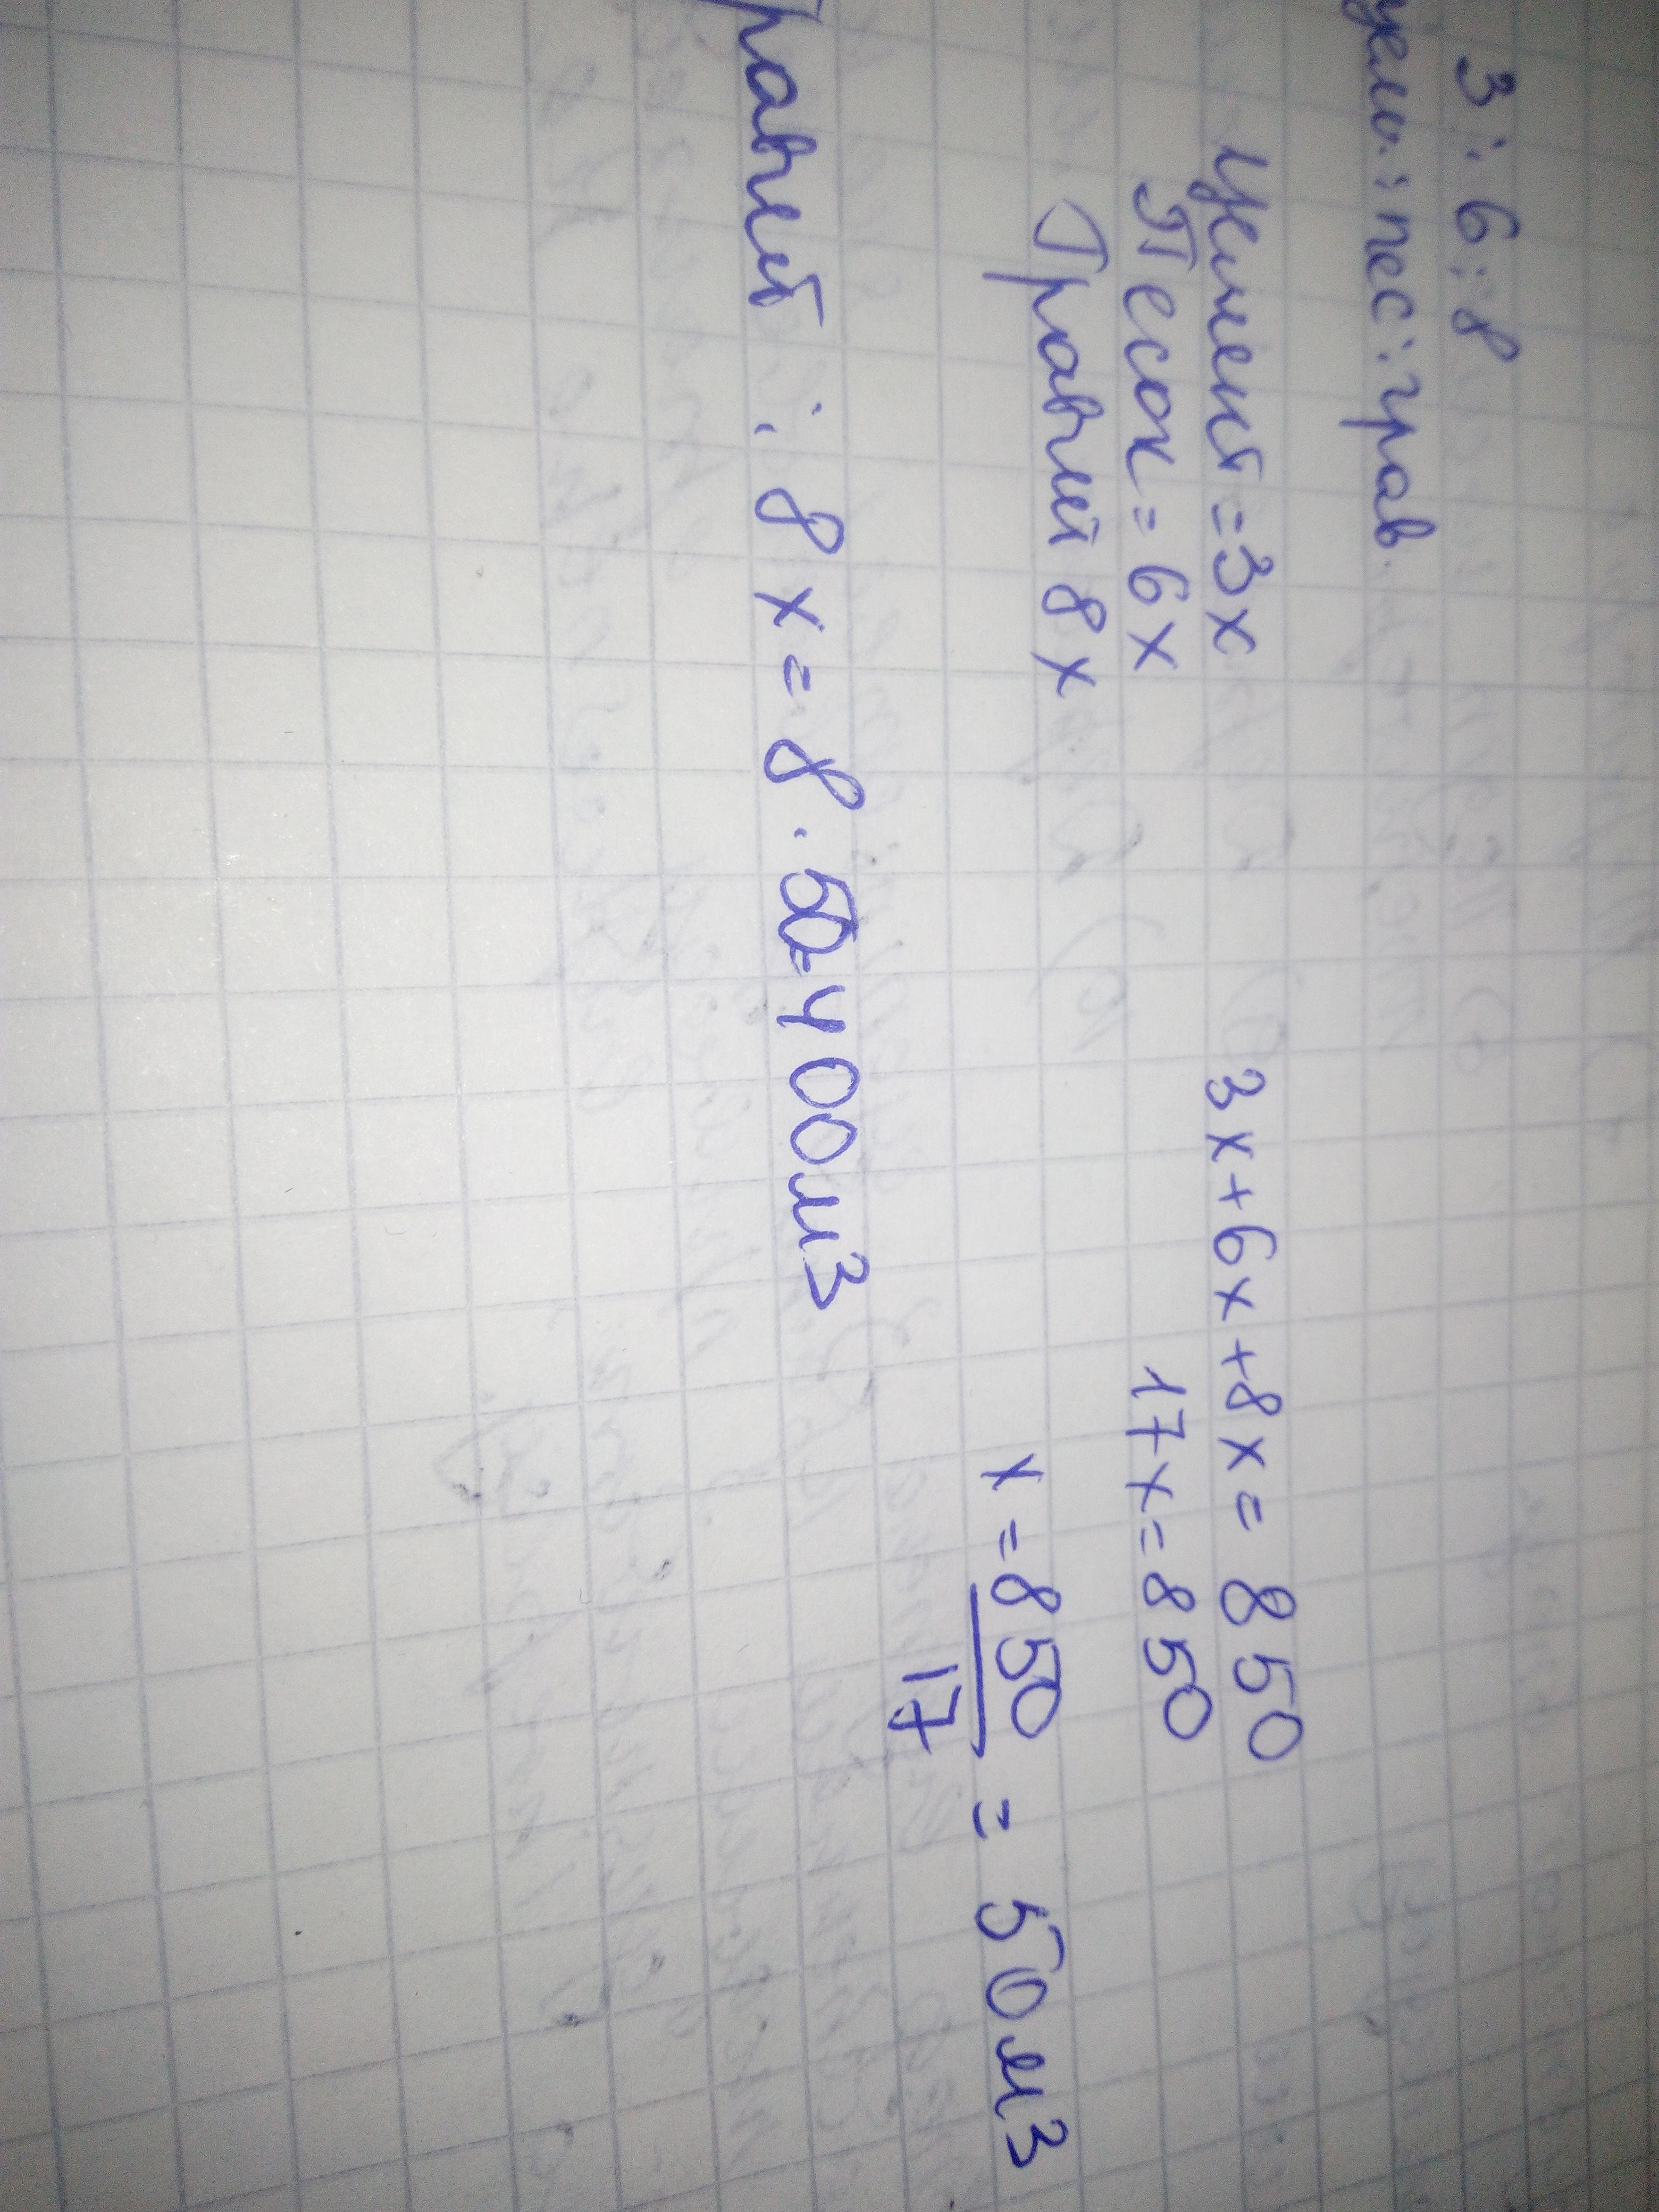 3:6:8
цем.:пес:грав.
Цемент=3х
Песок=6х
Гравий 8х
3х+6х+8х=850
17х=850
х=850/17=50м3
равий:8х=8·50=400м3